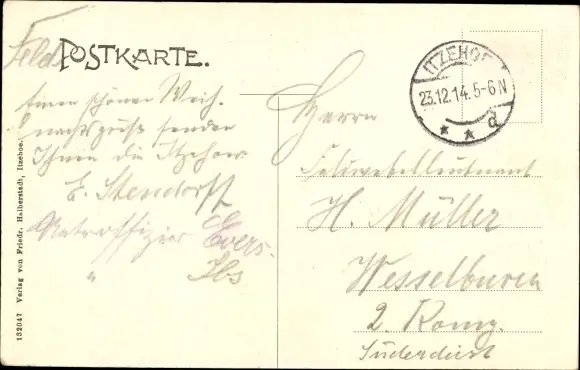 Feld
POSTKARTE.
ITZEHOE
23.12.14. 5-6 N
* * d
Einen schönen Weih-
nachtsgruß senden
Ihnen die Itzehoer
E. Stendorff
Unteroffizier Evers.
" Ibs
Herrn
Feldwebelleutnant
H. Müller
Wesselburen
2. Komp.
Süderdeich
132047 Verlag von Friedr. Halberstadt, Itzehoe.